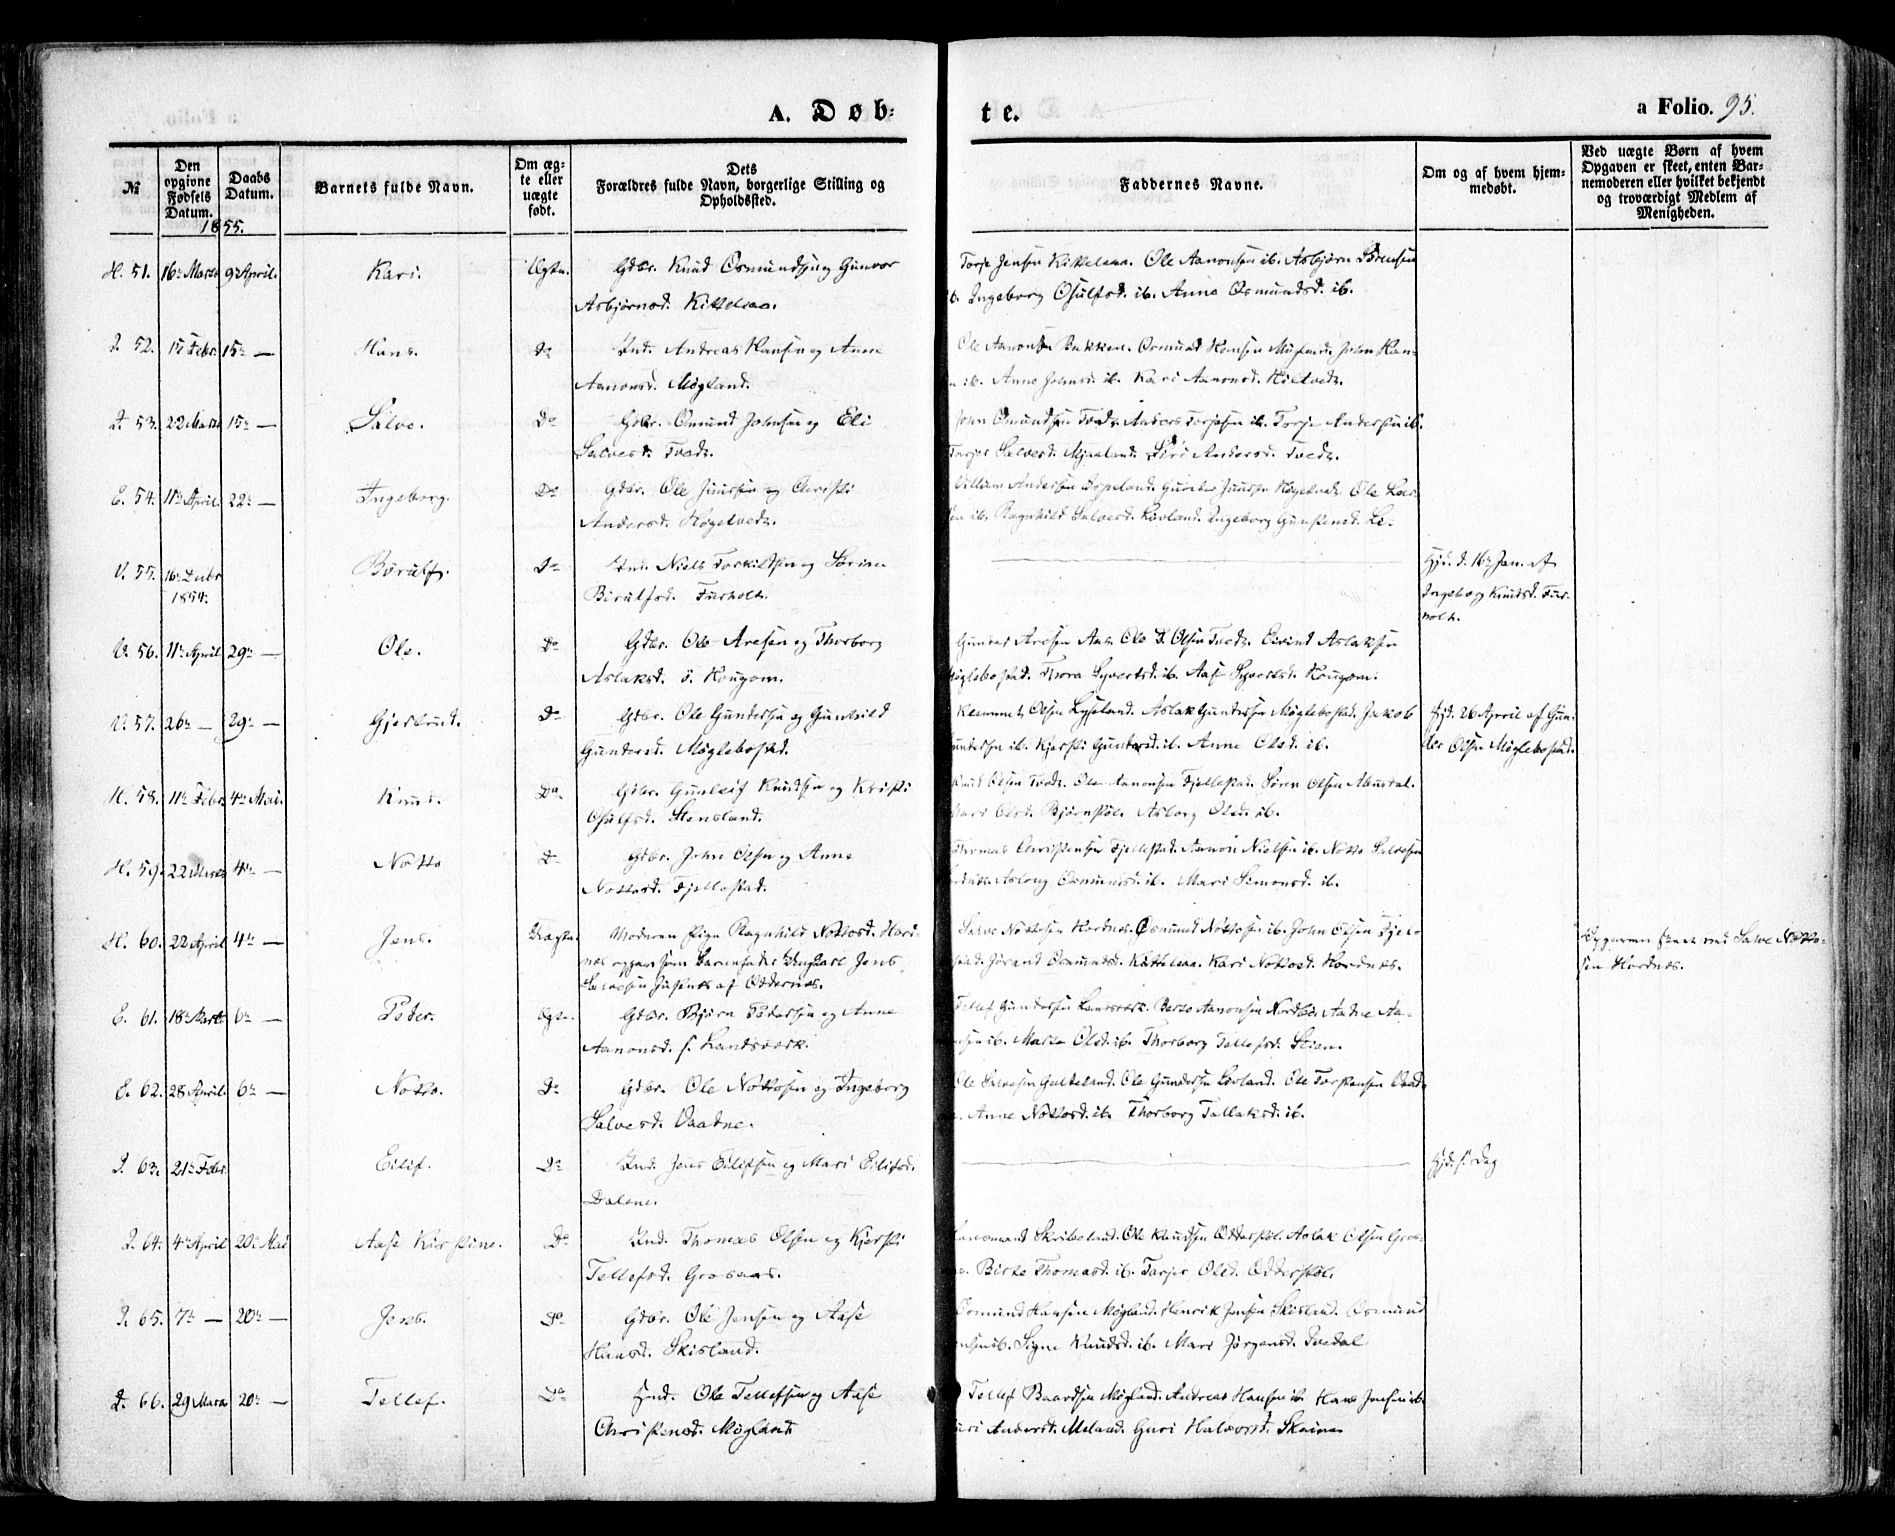 A. Døb-
te.
a Folio. 95.
№
Den opgivne Fødsels Datum.
Daabs Datum.
Barnets fulde Navn.
Om ægte eller uægte født.
Dets Forældres fulde Navn, borgerlige Stilling og Opholdssted.
Faddernes Navne.
Om og af hvem hjemmedøbt.
Ved uægte Børn af hvem Opgaven er skeet, enten Barnemoderen eller hvilket bekjendt og troværdigt Medlem af Menigheden.
1855.
H. 51. 16de Marts 9de April. Kari. Ægte. Gdbr. Knud Osmundsen og Gunvor
Asbjørnsd. Kittelsaa.
Torje Jensen Kittelsaa. Ole Aanonsen ib. Asbjørn Sørensen
ib. Ingeborg Osulfsd. ib. Anne Osmundsd. ib.
52. 15 Febr. 15de — Hans. Do Ind. Andreas Hansen og Anne
Aanonsd. Møgland.
Ole Aanonsen Bakken. Osmund Hansen Møgland. John Han-
ib. Anne Johnsd. ib. Kari Aanonsd.
53. 22 Marts 15de — Salve. Do Gdbr. Omund Johnsen og Eli
Salvesd. Tvedt.
John Omundsen Tvedt. Anders Torjesen ib. Torje Andersen ib.
Torjer Salvesd. Mjaaland. Siri Andersd. Tvedt.
E. 54. 11te April. 22de — Ingeborg. Do Gdbr. Ole Juursen og Christi
Andersd. Høgetvedt.
William Andersen Gunder Juursen Høgetvedt. Ole Lar-
sen ib. Ragnhild Salvesd. Løvland. Ingeborg Gunstensd.
V. 55. 16de Decbr 1854. Børulf. Do Ind. Niels Torkildsen og Sørine
Birulfsd. Furholt.
Hjd. d. 16de Jan. af
Ingeborg Knudsd. Fur-
holt.
V. 56. 11te April 29de — Ole. Do Gdbr. Ole Aresen og Thorborg
Aslaksd. ö. Kougom.
Gunder Aresen Aas. Ole D. Olsen Tvedt. Eivind Aslaksen
Møglebostad. Thora Syvertsd. ib. Aase Syvertsd. Kougom.
V. 57. 26de — 29de — Gjertrud. Do Gdbr. Ole Gundersen og Gunhild
Gundersd. Møglebostad.
Klemmet Olsen Lyseland. Aslak Gundersen Møglebostad. Jakob
Gundersen ib. Kjersti Gundersd. ib. Anne Olsd. ib.
Hjd. 26 April af Gun-
der Olsen Møglebostad.
H. 58. 11te Febr. 4de Mai. Knud. Do Gdbr. Gunleif Knudsen og Kristi
Osulfsd. Stensland.
Knud Olsen Tvedt. Ole Aanonsen Fjellestad. Søren Olsen Abusdal.
Mari Olsd. Bjørnstøl. Asborg Olsd. ib.
H. 59. 22 Marts 4de — Notto Do Gdbr. John Olsen og Anne
Nottosd. Fjellestad.
Thomas Christensen Fjellestad. Aanon Nielsen ib. Notto Salvesen
Hordnes. Aslaug Osmundsd. ib. Mari Simonsd. ib.
H. 60. 22 April 4de — Jens. Uægte. Moderen Pige Ragnhild Nottosd. Hord-
nes opgav som Barnefader Ungkarl Jens
Salvesen af Oddernes.
Salve Nottosen Hordnes. Osmund Nottosen ib. John Olsen Fjel-
stad. Jørand Osmundsd. Kittelsaa. Kari Nottosd. Hordnes.
Opgaven skeet ved Salve Notto-
sen Hordnes.
E. 61. 18de Marts 6te — Peder. Ægte. Gdbr. Bjørn Pedersen og Anne
Aanonsd. s. Landsverk.
Tellef Gundersen Landsverk. Berto Aanonsen Aadne Aa-
nonsen ib. Marte Olsd. ib. Thorborg Tellefsd. Stien.
E. 62. 28 April. 6te — Notto. Do Gdbr. Ole Nottosen og Ingeborg
Salvesd. Vaatne.
Ole Salvesen Ole Gundersen Løvland. Ole Torstensen Vaat-
ne. Anne Nottosd. ib. Thorborg Tallaksd. ib.
63. 21de Febr. Eilif. Do Ind. Jens Eilifsen og Mari Eilifsd.
Dalene.
Hjd. s. Dag
64. 4de April 20de Mai Aase Kirstine. Do Ind. Thomas Olsen og Kjersti
Tellefsd. Grosaas.
Skribeland. Ole Knudsen Odderstøl. Aslak Olsen Gros-
Birte Thomasd. ib. Torjer Olsd. Odderstøl.
65. 7de — 20de — Jens. Do Gdbr. Ole Jensen og Aase
Hansd. Skisland.
Osmund Hansen Møgland. Henrik Jensen Skisland. Osmund
Jensen ib. Signe Knudsd. ib. Mari Jørgensd. Ivedal
66. 29 Marts 20de — Tellef. Do Ind. Ole Tellefsen og Aase
Christensd. Møgland
Tellef Baardsen Møgland. Andreas Hansen ib. Hans Jensen ib.
Andersd. Guri Halvorsd.